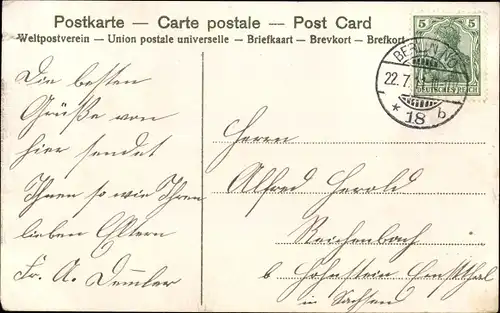 Postkarte — Carte postale — Post Card
Weltpostverein — Union postale universelle — Briefkaart — Brevkort — Brefkort
5 5
DEUTSCHES REICH
BERLIN NO
22.7.
* 18 b
Die besten
Grüße von
hier sendet
Ihnen so wie Ihren
lieben Eltern
Fr. A. Demler
Herrn
Alfred Herold
Reichenbach
b Hohnstein Ernstthal
in Sachsen